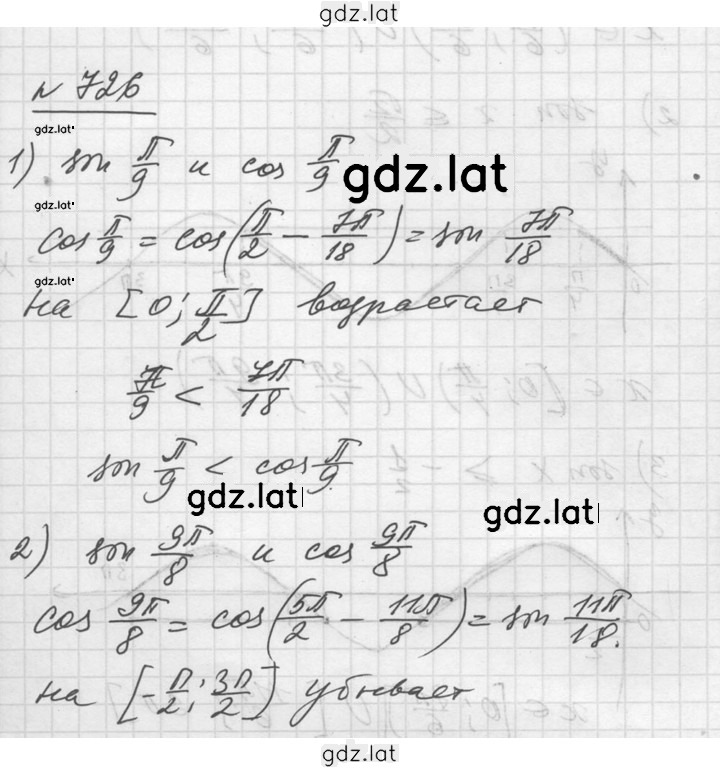 gdz.lat
№ 726
gdz.lat
1) sin π/9 и cos π/9
gdz.lat
gdz.lat
cos π/9 = cos(π/2 − 7π/18) = sin 7π/18
gdz.lat
на [0; π/2] возрастает
π/9 < 7π/18
sin π/9 < cos π/9.
gdz.lat
gdz.lat
2) sin 9π/8 и cos 9π/8
cos 9π/8 = cos(5π/2 − 11π/8) = sin 11π/18.
на [-π/2; 3π/2] убывает
gdz.lat